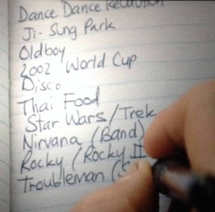 Dance Dance Revolution
Ji-Sung Park
Oldboy
2002 World Cup
Disco
Thai Food
Star Wars/Trek
Nirvana (Band)
Rocky (Rocky II
Troubleman (S